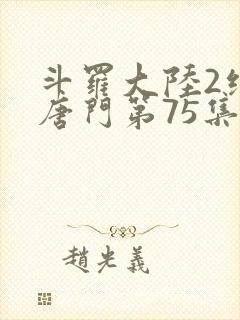 斗羅大陸2
唐門第75集
趙光義